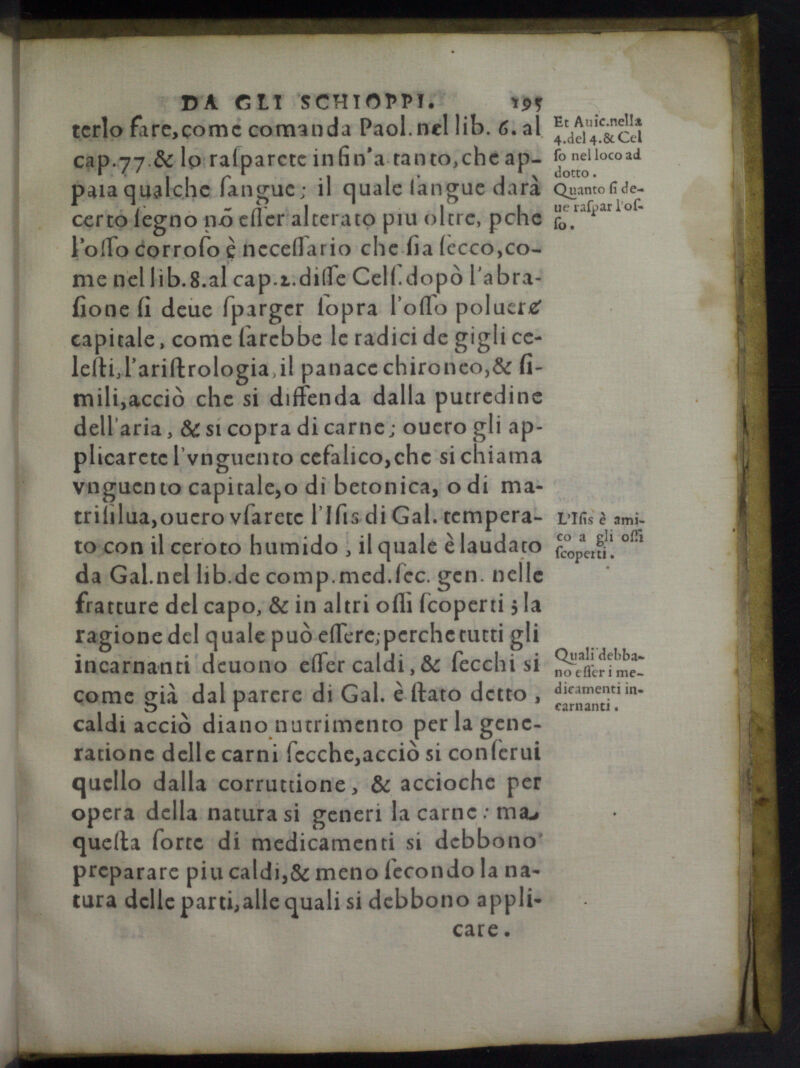 DA GLI SCHIOPPI. 195
terlo fare,come comanda Paol.nel lib. 6. al
cap.77.& lo raſparete infin'a tanto,che ap-
paia qualche ſangue; il quale ſangue darà
certo ſegno nõ eſſer alterato piu oltre, pche
l'oſſo corroſo è neceſſario che ſia ſecco,co-
me nel lib.8.al cap.2.diſſe Celſ.dopò l'abra-
ſione ſi deue ſparger ſopra l'oſſo poluere
capitale, come ſarebbe le radici de gigli ce-
leſti,l'ariſtrologia,il panace chironeo,& ſi-
mili,acciò che si diffenda dalla putredine
dell'aria, & si copra di carne; ouero gli ap-
plicarete l'vnguento cefalico,che si chiama
vnguento capitale,o di betonica, o di ma-
triſilua,ouero vſarete l'Iſis di Gal. tempera-
to con il ceroto humido, il quale è laudato
da Gal.nel lib.de comp.med.ſec. gen. nelle
fratture del capo, & in altri oſſi ſcoperti; la
ragione del quale può eſſere;perche tutti gli
incarnanti deuono eſſer caldi, & ſecchi si
come già dal parere di Gal. è ſtato detto,
caldi acciò diano nutrimento per la gene-
ratione delle carni ſecche,acciò si conſerui
quello dalla corruttione, & accioche per
opera della natura si generi la carne: ma
queſta ſorte di medicamenti si debbono
preparare piu caldi,& meno ſecondo la na-
tura delle parti,alle quali si debbono appli-
care.
Et Auic.nella
4.del 4.& Cel
ſo nel loco ad
dotto.
Quanto ſi de-
ue raſpar l'oſ-
ſo.
L'Iſis è ami-
co a gli oſſi
ſcoperti.
Quali debba-
no eſſer i me-
dicamenti in-
carnanti.